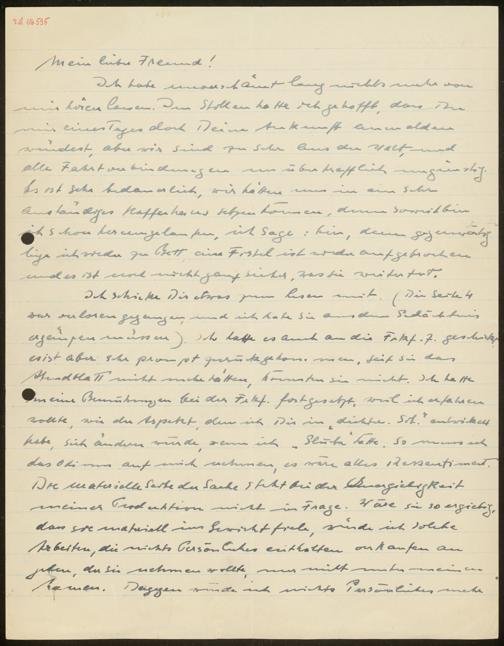 Mein lieber Freund!
Ich habe unverschämt lang nichts mehr von
mir hören lassen. Im Stillen hatte ich gehofft, dass Du
mir eines Tages doch Deine Ankunft anmelden
würdest, aber wir sind zu sehr aus der Welt, und
alle Fahrtverbindungen unübertrefflich ungünstig.
Es ist sehr bedauerlich, wir hätten uns in ein sehr
anständiges Kaffeehaus setzen können, denn soweit bin
ich schon herumgelaufen, ich sage: bin, denn gegenwärtig
liege ich wieder zu Bett, eine Fistel ist wieder aufgebrochen
und es ist noch nicht ganz sicher, was sie weiter tut.
Ich schicke Dir etwas zum lesen mit. (Die Seite 4
war verloren gegangen und ich habe sie aus dem Gedächtnis
ergänzen müssen). Ich hatte es auch an die Frkf. Z. geschickt
es ist aber sehr prompt zurückgekommen, seit sie das
nicht mehr hätten, könnten sie nicht. Ich hatte
meine Bemühungen bei der Frkf. fortgesetzt, weil ich erfahren
wollte, wie der Aspekt, den ich Dir in entwickelt
habe, sich ändern würde, wenn ich hätte. So muss ich
das Odium auf mich nehmen, es wäre alles Ressentiment.
Die materielle Seite der Sache steht bei der Energielosigkeit
meiner Produktion nicht in Frage. Wäre sie so ergiebig,
dass sie materiell ins Gewicht fiele, würde ich solche
Arbeiten, die nichts Persönliches enthalten verkaufen an
jeden, der sie nehmen wollte, nur nicht unter meinem
Namen. Dagegen würde ich nichts Persönliches mehr